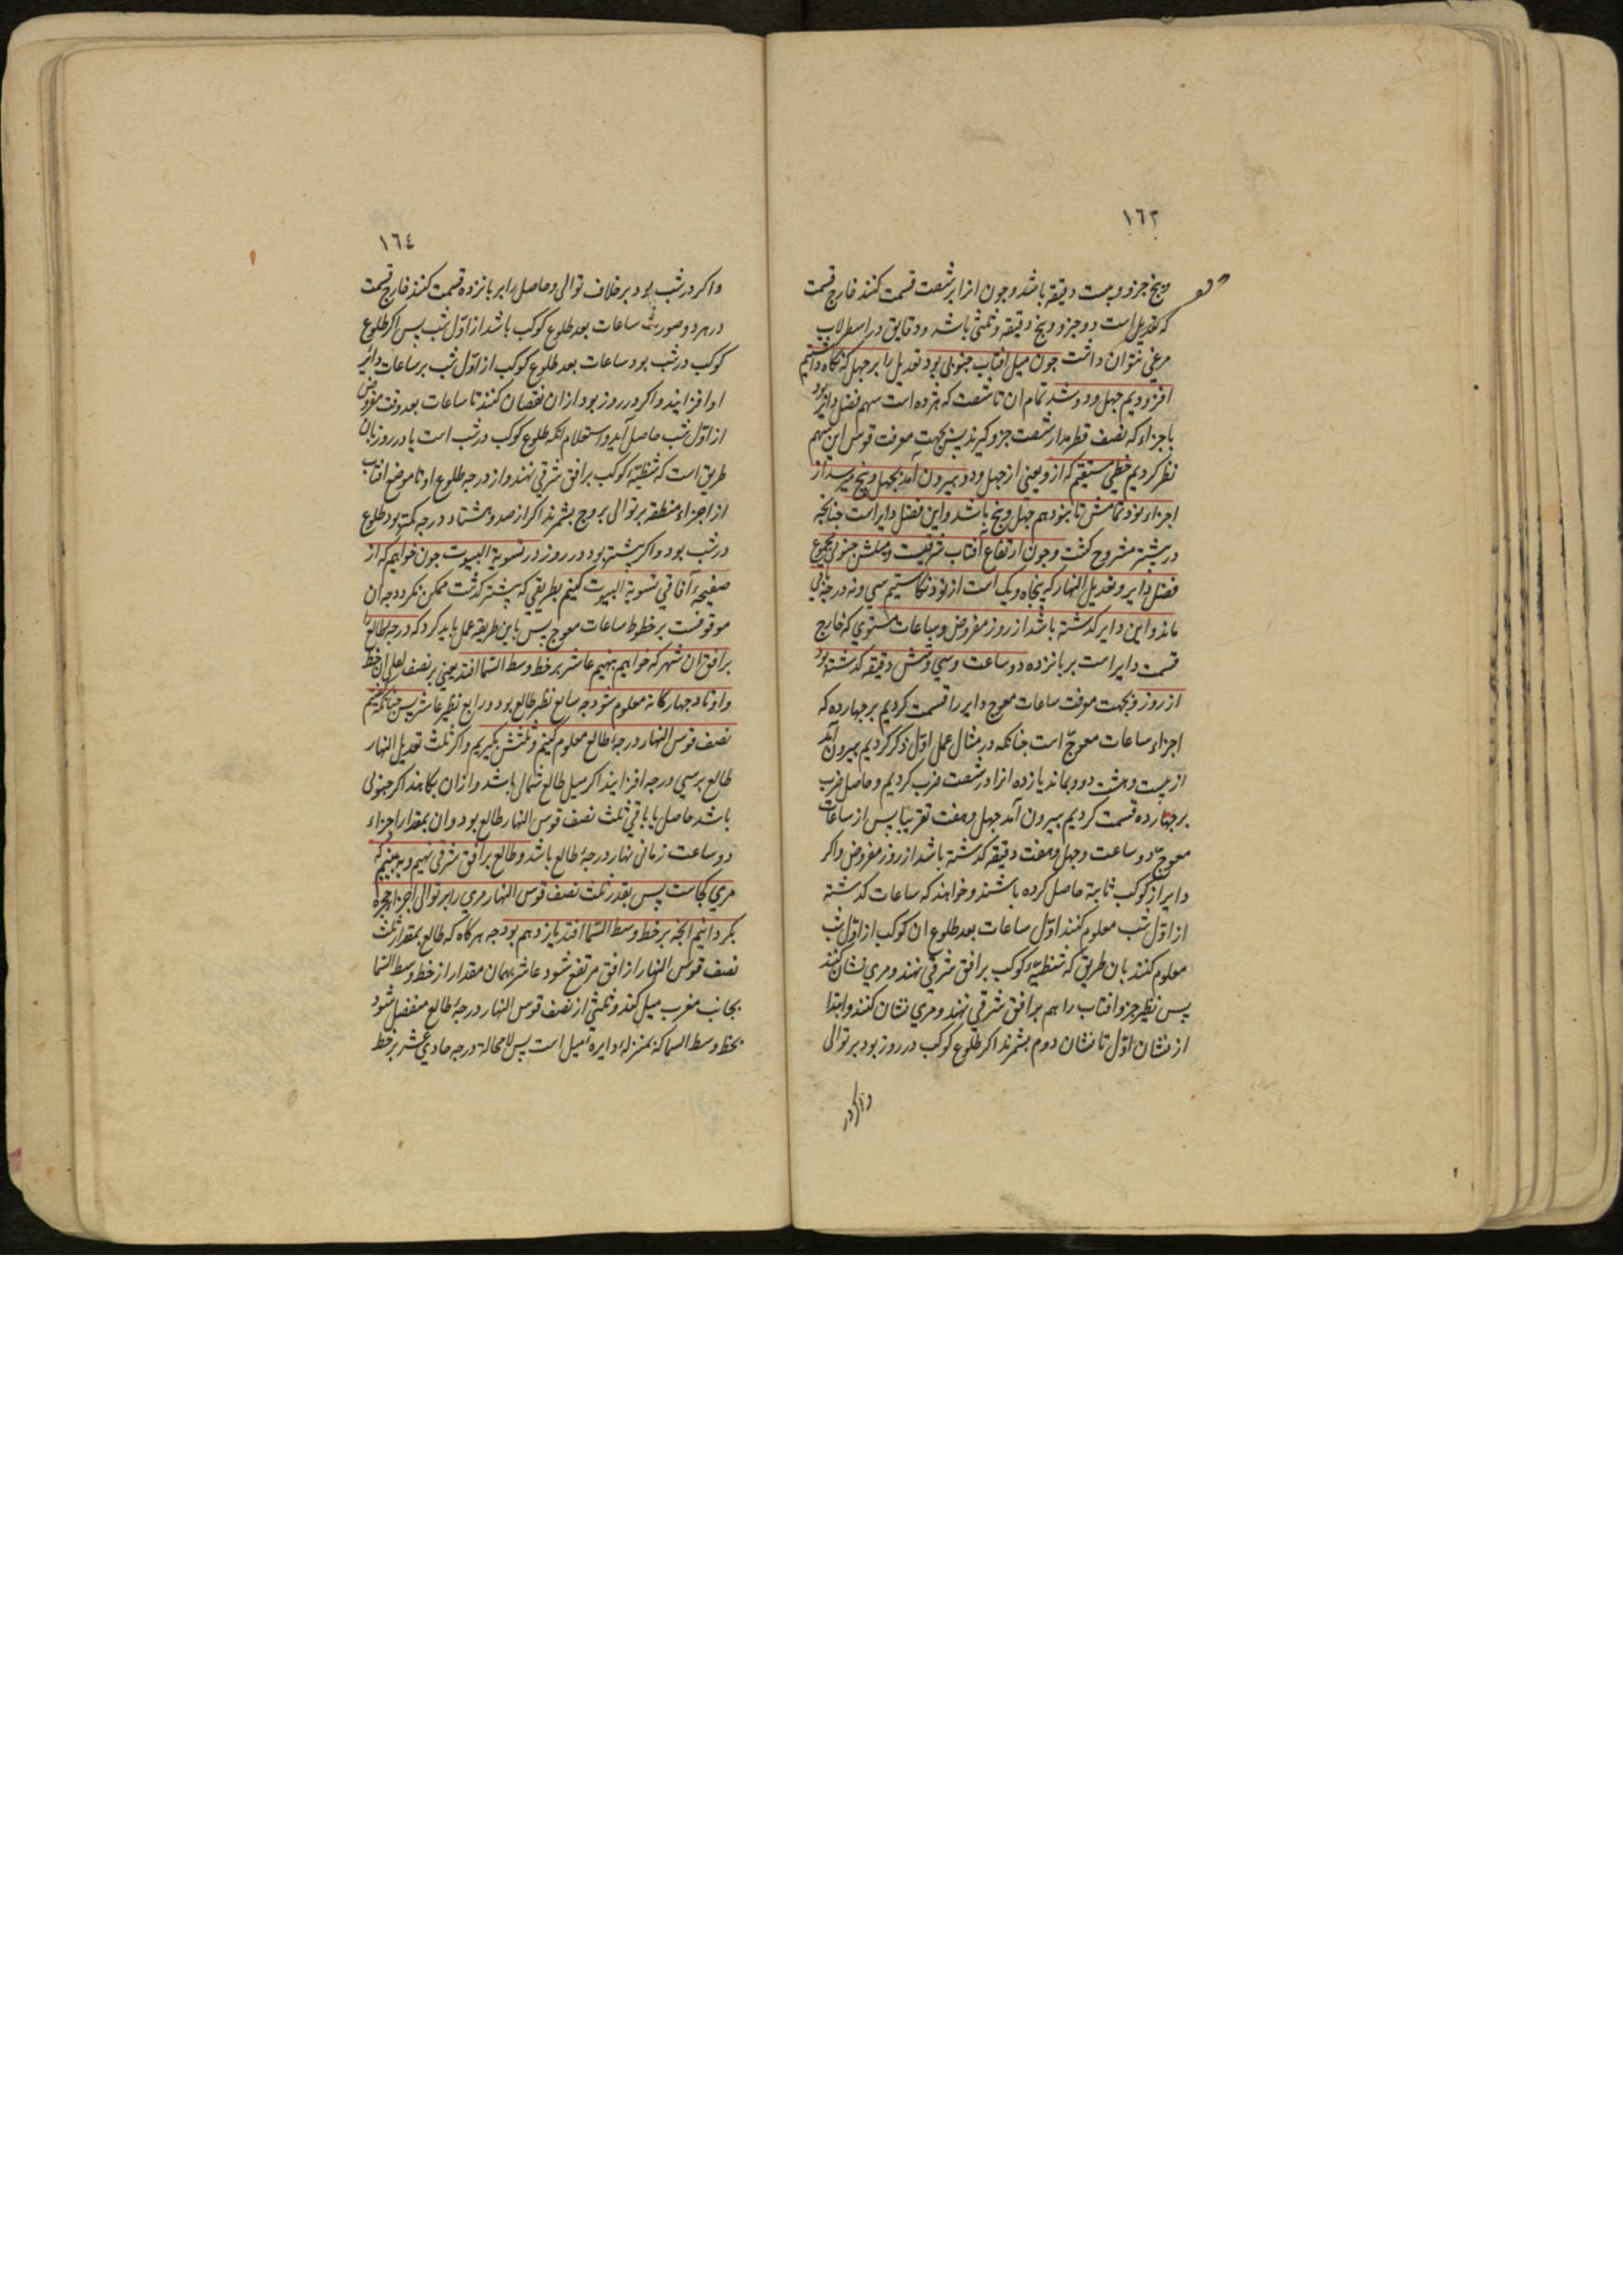 ١٦٣
وپنج جزو و بیست دقیقه باشد و چون انرا بر شصت قسمت کنند خارج قسمت
که تعدیل است دو جزو و پنج دقیقه و ثلثی باشد و دقایق در اسطرلاب
مرعی نتوان داشت چون میل افتاب جنوبی بود تعدیل را بر چهل که نکاه داشتیم
افزودیم چهل و دو شد تمام ان تا شصت که هژده است سهم فضل دایر بود
باجزاء که نصف قطر مدار شصت جزو کیرند پس بجهت معرفت قوس این سهم
نظر کردیم خطی مستقیم که ازو یعنی از چهل و دو بیرون آمد بچهل و پنج میرسد از
اجزاء نود تمامش تا بنود هم چهل و پنج باشد و این فضل دایر است چنانچه
در پیشتر مشروح کشت و چون ارتفاع افتاب شرقیست و میلش جنوبی مجموع
فضل دایر و تعدیل النهار که پنجاه و یک است از نود نکاستیم سی و نه درجه باقی
ماند و این دایر کذشته باشد از روز مفروض و بساعات مستوی که خارج
قسمت دایر است بر پانزده دو ساعت و سی و شش دقیقه کذشته بود
از روز و بجهت معرفت ساعات معوج دایر را قسمت کردیم بر چهارده که
اجزاء ساعات معوج است چنانکه در مثال عمل اول ذکر کردیم بیرون آمد
از بیست و هشت دو و بماند یازده انرا در شصت ضرب کردیم و حاصل ضرب
بر چهارده قسمت کردیم بیرون آمد چهل و هفت تقریبا پس از ساعات
معوج دو ساعت و چهل و هفت دقیقه کذشته باشد از روز مفروض واکر
دایر از کوکب ثابته حاصل کرده باشند و خواهند که ساعات کذشته
از اول شب معلوم کنند اول ساعات بعد طلوع ان کوکب از اول شب
معلوم کنند بان طریق که شظیهٔ کوکب بر افق شرقی نهند و مری نشان کنند
پس نظیر جزو افتاب را هم بر افق شرقی نهند و مری نشان کنند و ابتدا
از نشان اول تا نشان دوم بشمرند اکر طلوع کوکب در روز بود بر توالی
واکر در
١٦٤
واکر در شب بود بر خلاف توالی و حاصل را بر پانزده قسمت کنند خارج قسمت
در هر دو صورت ساعات بعد طلوع کوکب باشد از اول شب پس اکر طلوع
کوکب در شب بود ساعات بعد طلوع کوکب از اول شب بر ساعات دائر
او افزایند واکر در روز بود ازان نقصان کنند تا ساعات بعد وقت مفروض
از اول شب حاصل آید و استعلام انکه طلوع کوکب در شب است یا در روز بان
طریق است که شظیهٔ کوکب بر افق شرقی نهند و از درجه طلوع او تا موضع افتاب
از اجزاء منطقه بر توالی بروج بشمرند اکر از صد و هشتاد درجه کمتر بود طلوع
در شب بود واکر بیشتر بود در روز در تسویة البیوت چون خواهیم که از
صفیحهٔ آفاقی تسویة البیوت کنیم بطریقی که پیشتر کذشت ممکن نکردد چه ان
موقوفست بر خطوط ساعات معوج پس باین طریقه عمل باید کرد که درجه طالع را
بر افق ان شهر که خواهیم بنهیم عاشر بر خط وسط السما افتد یعنی بر نصف اعلی ان خط
و اوتاد چهارکانه معلوم شود چه سابع نظیر طالع بود و رابع نظیر عاشر پس چنانکه کفتیم
نصف قوس النهار درجهٔ طالع معلوم کنیم و ثلثش بکیریم واکر ثلث تعدیل النهار
طالع بر سی درجه افزایند اکر میل طالع شمالی باشد و ازان بکاهند اکر جنوبی
باشد حاصل یا باقی ثلث نصف قوس النهار طالع بود وان بمقدار اجزاء
دو ساعت زمانی نهار درجهٔ طالع باشد و طالع بر افق شرقی نهیم و به بینیم که
مری کجاست پس بقدر ثلث نصف قوس النهار مری را بر توالی اجزاء حجره
بکردانیم انچه بر خط وسط السما افتد یازدهم بود چه هرکاه که طالع بمقدار ثلث
نصف قوس النهار از افق مرتفع شود عاشر بهمان مقدار از خط وسط السما
بجانب مغرب میل کند و ثلثی از نصف قوس النهار درجهٔ طالع منفصل شود
بخط وسط السما که بمنزلهٔ دایره میل است پس لامحالة درجه حادی عشر بر خط